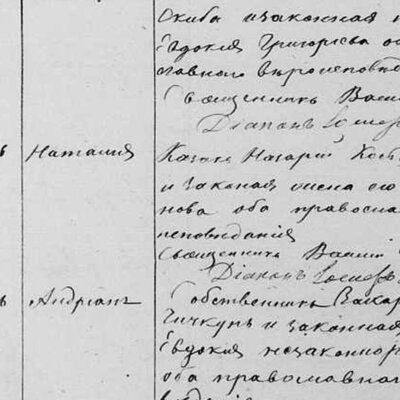 Скиба и законная
Евдокия Григорьева
славного вероисповед
Священникъ Васи
Діаконъ Іосиф
ъ Наталия Казакъ Назарий Кось
и законая жена его
нова оба правосла
исповедания
Священникъ Васи
Діаконъ Іосиф
ъ Андрианъ Собственникъ Захар
Чичкунъ и законная
Евдокия незаконнор
оба православного